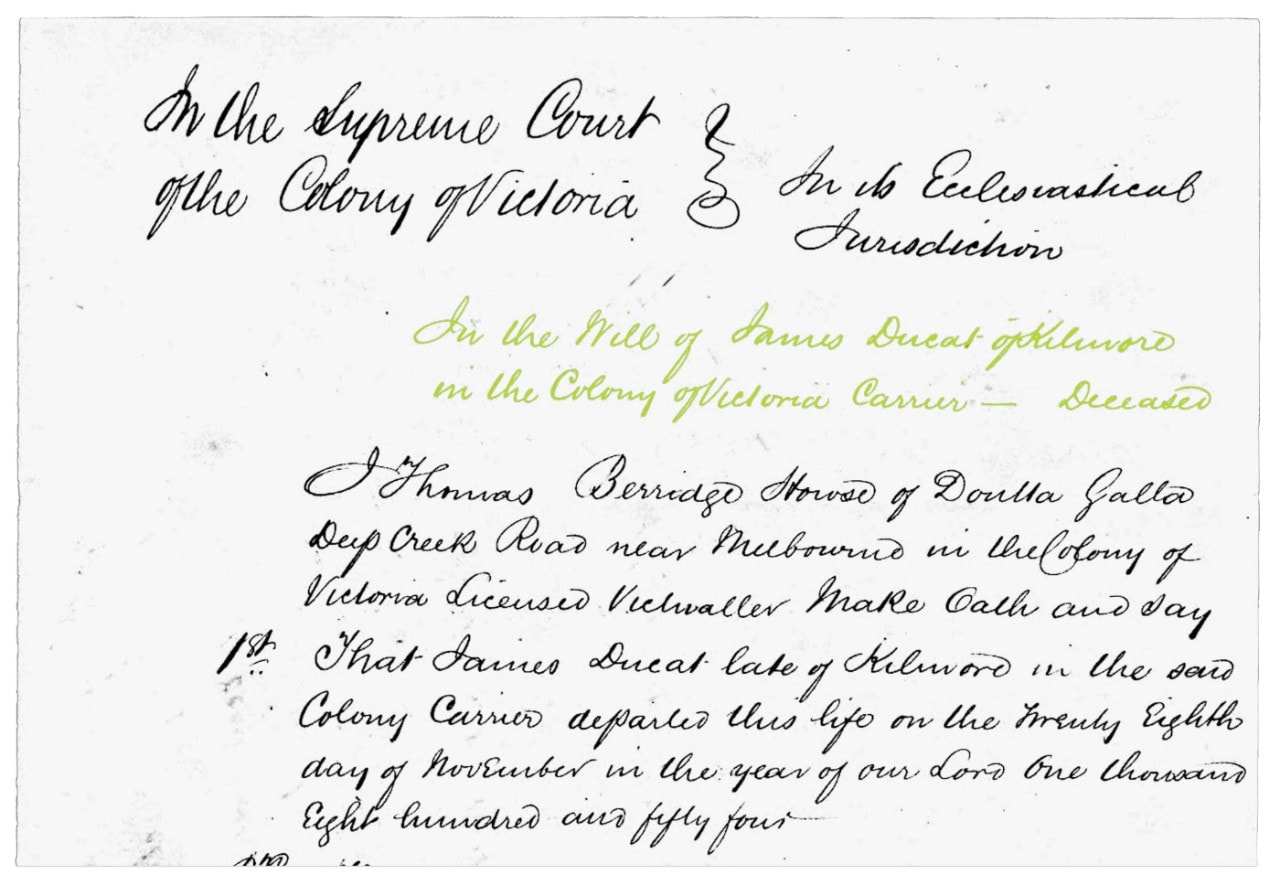 In the Supreme Court
of the Colony of Victoria
In its Ecclesiastical
Jurisdiction
In the Will of James Ducat of Kilmore
in the Colony of Victoria Carrier — Deceased
I Thomas Berridge Howse of Doutta Galla
Deep Creek Road near Melbourne in the Colony of
Victoria Licensed Victualler Make Oath and say
1st That James Ducat late of Kilmore in the said
Colony Carrier departed this life on the Twenty Eighth
day of November in the year of our Lord One thousand
Eight hundred and fifty four